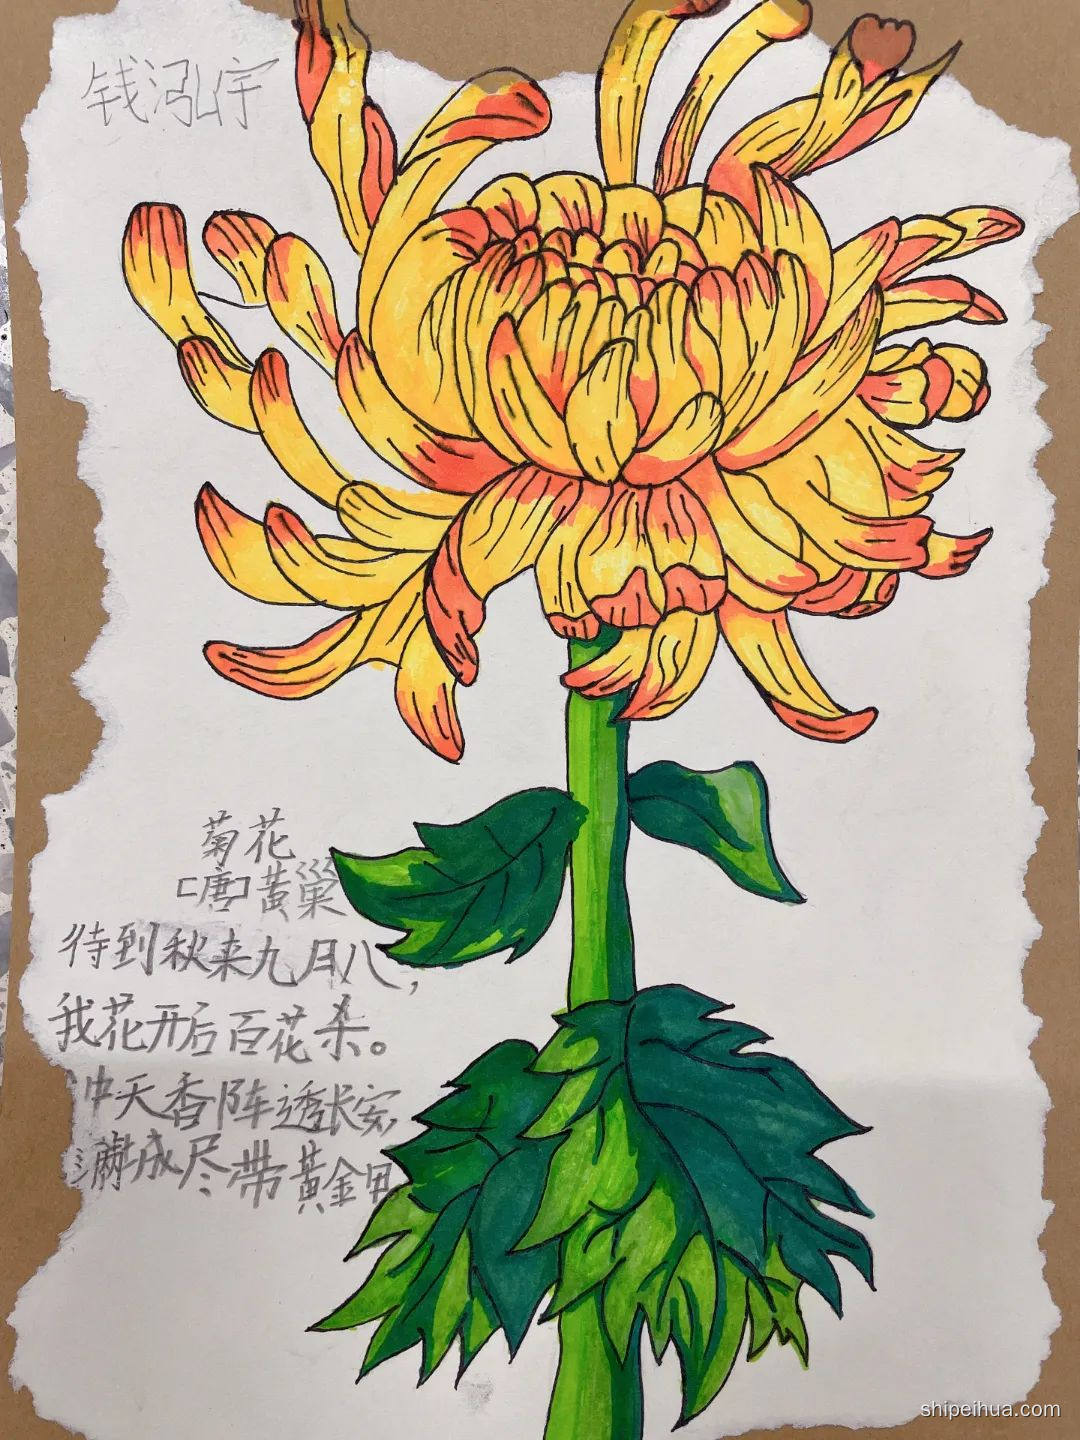 钱泓宇
菊花
[唐]黄巢
待到秋来九月八，
我花开后百花杀。
冲天香阵透长安，
满城尽带黄金甲
shipeihua.com